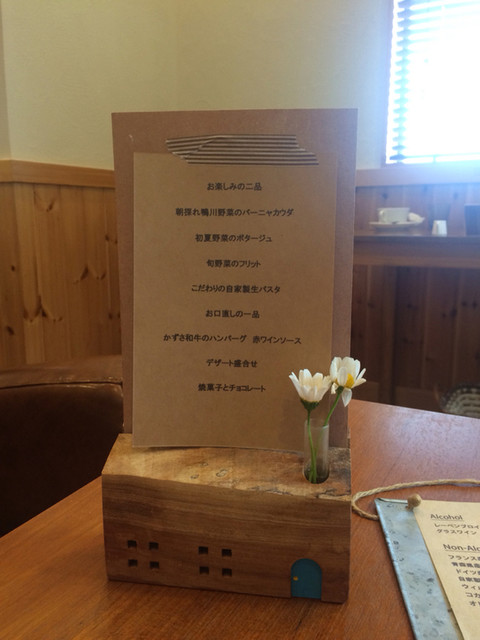 お楽しみの二品
朝採れ鴨川野菜のバーニャカウダ
初夏野菜のポタージュ
旬野菜のフリット
こだわりの自家製生パスタ
お口直しの一品
かずさ和牛のハンバーグ 赤ワインソース
デザート盛合せ
焼菓子とチョコレート
Alcohol
レーベンブロイ
グラスワイン
Non-Alc
フランス
ドイツ
自家製
ウィル
コカ
オレ